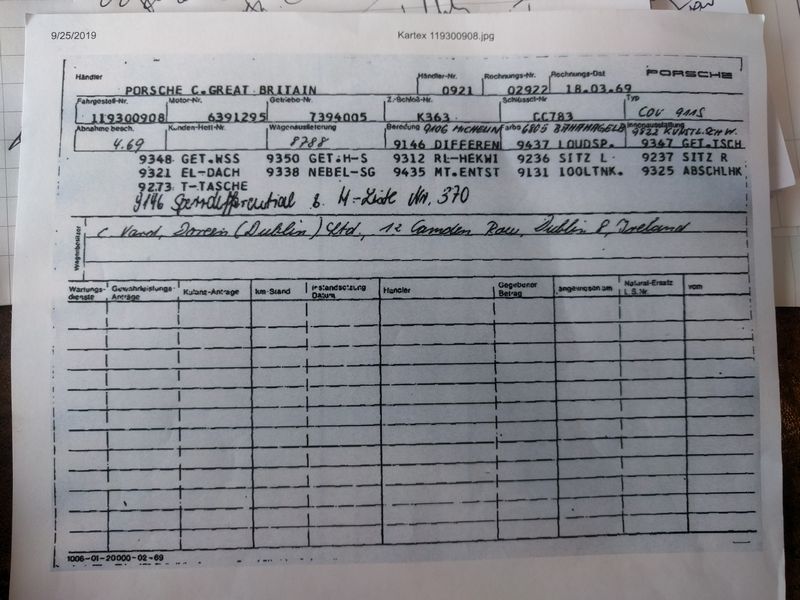 9/25/2019 Kartex 119300908.jpg
Händler Händler-Nr. Rechnungs-Nr. Rechnungs-Dat PORSCHE
PORSCHE C.GREAT BRITAIN 0921 02922 18.03.69
Fahrgestell-Nr. Motor-Nr. Getriebe-Nr. Z.-Schloß-Nr. Schlüssel-Nr. Typ
119300908 6391295 7394005 K363 CC783 COU 911S
Abnahme besch. Kunden-Heft-Nr. Wagenauslieferung Bereifung 9106 MICHELIN Farbe 6805 BAHAMAGELB Innenausstattung 9822 KUNSTL. SCHW.
4.69 8788 9146 DIFFEREN 9437 LOUDSP. 9367 GET.TSCH
9348 GET.WSS 9350 GET.H-S 9312 RL-HEKWI 9236 SITZ L 9237 SITZ R
9321 EL-DACH 9338 NEBEL-SG 9435 MT.ENTST 9131 100LTNK. 9325 ABSCHLHK
9273 T-TASCHE
9196 Sperrdifferential M-Liste Nr. 370
Wagenbesitzer
(Dublin) Ltd., 12 Camden Row, Dublin 8, Ireland
Wartungs- Gewährleistungs- Kulanz-Anträge km-Stand Instandsetzung Händler Gegebener angewiesen am Natural-Ersatz vom
dienste Anträge Datum Betrag L.S.Nr.
1006-01-20000-02-69